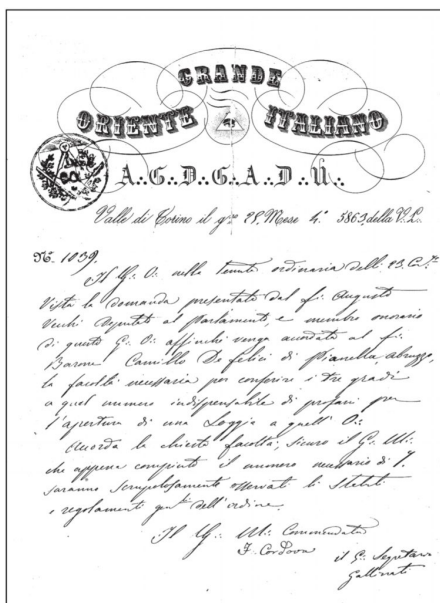 GRANDE
ORIENTE ITALIANO
A∴G∴D∴G∴A∴D∴U∴
Valle di Torino il g.no 28, Mese 4° 5863 della V∴L∴
N° 1039.
Il G∴O∴ nella tenuta ordinaria dell: 23. C.te
Vista la domanda presentata dal f∴ Augusto
Vecchi deputato al Parlamento, e membro onorario
di questo G∴O∴ affinchè venga accordata al f∴
Barone Camillo De felici di Pianella, Abruzzo,
la facoltà necessaria per conferire i tre gradi
a quel numero indispensabile di profani per
l'apertura di una Loggia a quell'O∴
Accorda la chiesta facoltà, sicuro il G∴M∴
che appena compiuto il numero necessario di 7.
saranno scrupolosamente osservati li Statuti
e regolamenti dell'ordine.
Il G∴M∴ Commendatore
F. Cordova
il G∴ Segretario
Gallinati